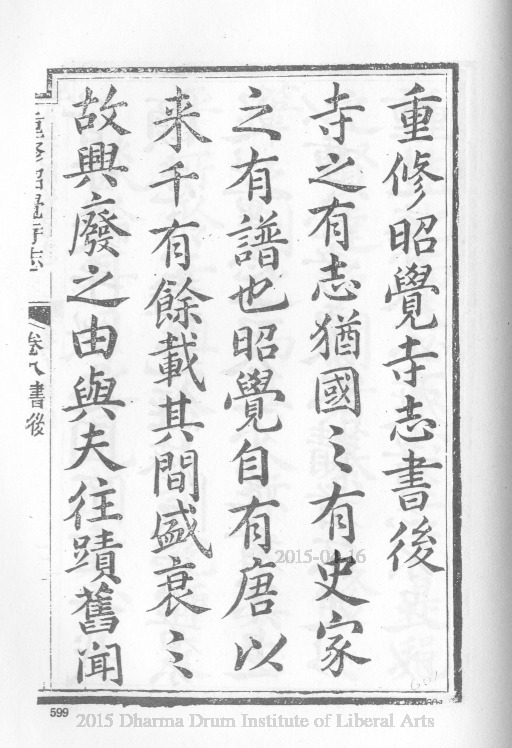 重修昭覺寺志書後
寺之有志猶國之有史家
之有譜也昭覺自有唐以
来千有餘載其間盛衰之
故興廢之由與夫往蹟舊聞
重修昭覺寺志
卷八書後
2015-04-16
599
2015 Dharma Drum Institute of Liberal Arts